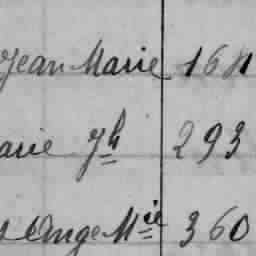 Jean Marie 164
arie Jh 293
Ange Mie 360